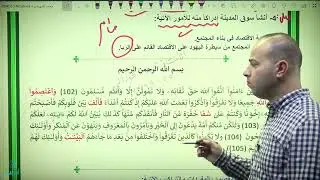 هام
6- أنشأ سوق المدينة إدراكًا منه للأمور الآتية:
الاقتصاد في بناء المجتمع
المجتمع من سيطرة اليهود على الاقتصاد القائم على الربا.
بسم الله الرحمن الرحيم
آمنوا اتقوا الله حق تقاته ولا تموتن إلا وأنتم مسلمون (102) واعتصموا
الله جميعا ولا تفرقوا واذكروا نعمت الله عليكم إذ كنتم أعداء فألف بين قلوبكم فأصبحتم
إخوانا وكنتم على شفا حفرة
(103) ولتكن منكم أمة يدعون إلى الخير ويأمرون بالمعروف وينهون عن المنكر وأولئك
(104) ولا تكونوا كالذين تفرقوا واختلفوا من بعد ما جاءهم البينت وأولئك لهم
(105)